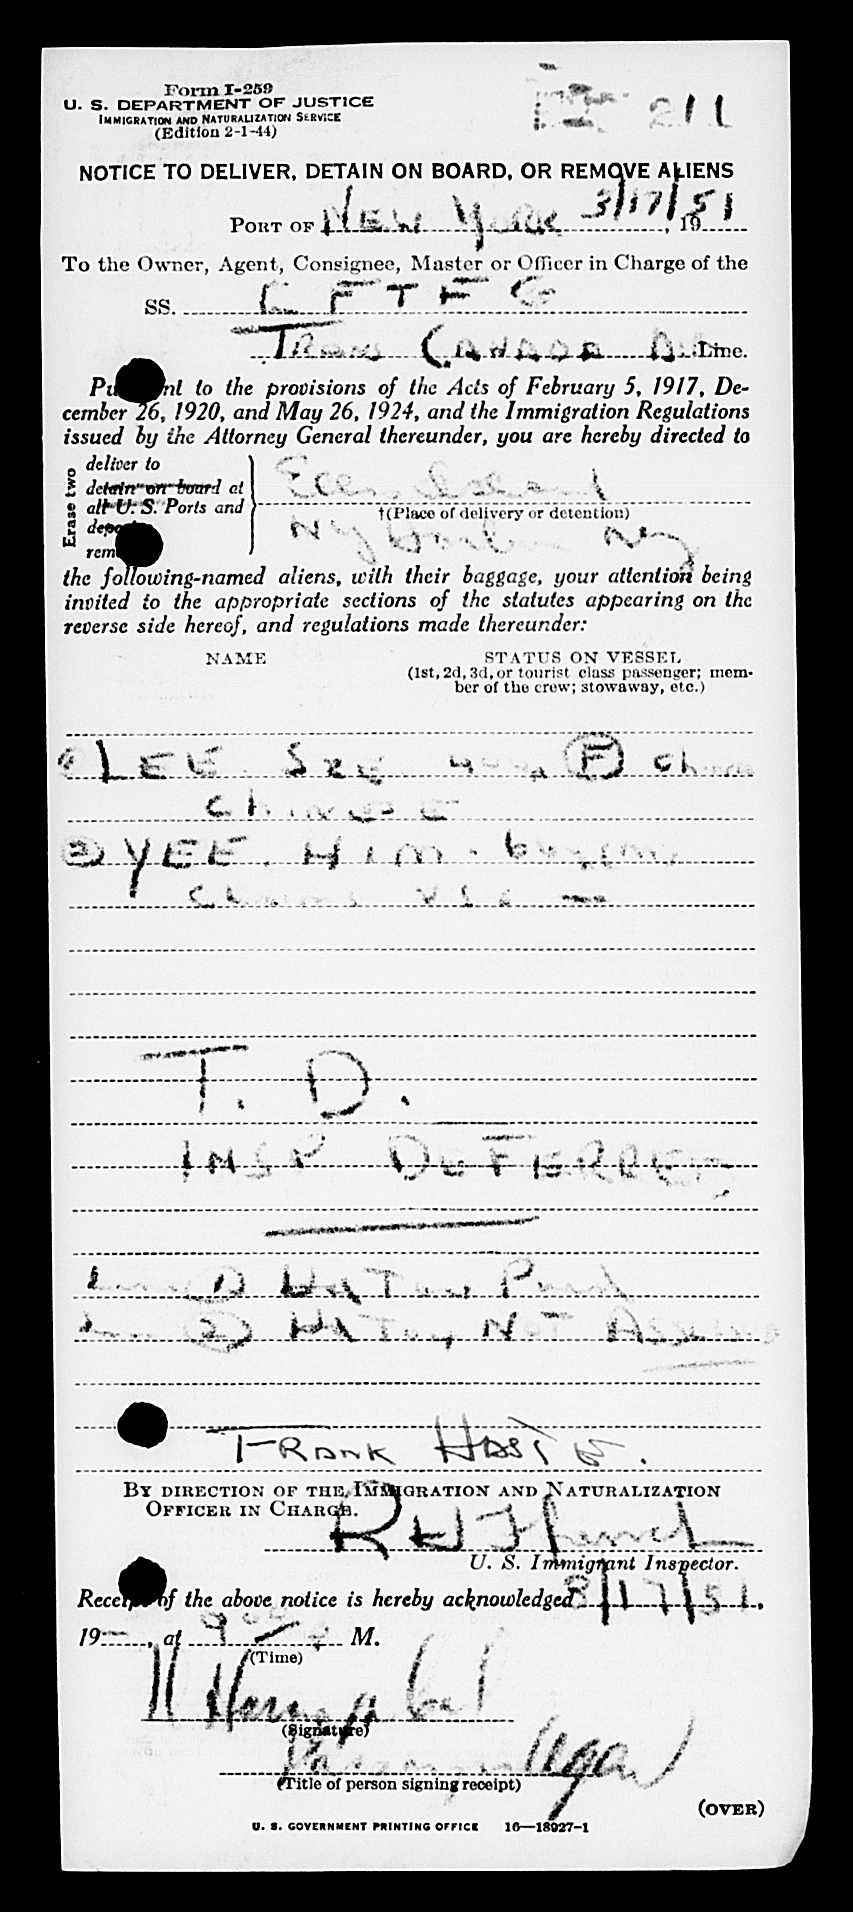 Form I-259
U. S. DEPARTMENT OF JUSTICE
IMMIGRATION AND NATURALIZATION SERVICE
(Edition 2-1-44)
211
NOTICE TO DELIVER, DETAIN ON BOARD, OR REMOVE ALIENS
PORT OF NEW YORK 3/17/51, 19
To the Owner, Agent, Consignee, Master or Officer in Charge of the
SS. C F T F G
TRANS CANADA AIR Line.
Pursuant to the provisions of the Acts of February 5, 1917, De-
cember 26, 1920, and May 26, 1924, and the Immigration Regulations
issued by the Attorney General thereunder, you are hereby directed to
Erase two
deliver to
detain on board at
all U. S. Ports and
deport
remove
Ellis Island
†(Place of delivery or detention)
NY Harbor NY
the following-named aliens, with their baggage, your attention being
invited to the appropriate sections of the statutes appearing on the
reverse side hereof, and regulations made thereunder:
NAME
STATUS ON VESSEL
(1st, 2d, 3d, or tourist class passenger; mem-
ber of the crew; stowaway, etc.)
LEE SZE (F) China
CHINESE
(2) YEE. HIM.
T. D.
INSP DEFERRED
(1) Hd Tax Paid
(2) Hd Tax NOT Assessed
FRANK
BY DIRECTION OF THE IMMIGRATION AND NATURALIZATION
OFFICER IN CHARGE.
U. S. Immigrant Inspector.
Receipt of the above notice is hereby acknowledged 3/17/51,
19 , at 9 M.
(Time)
(Signature)
Passenger Agent
(Title of person signing receipt)
(OVER)
U. S. GOVERNMENT PRINTING OFFICE 16—18927-1